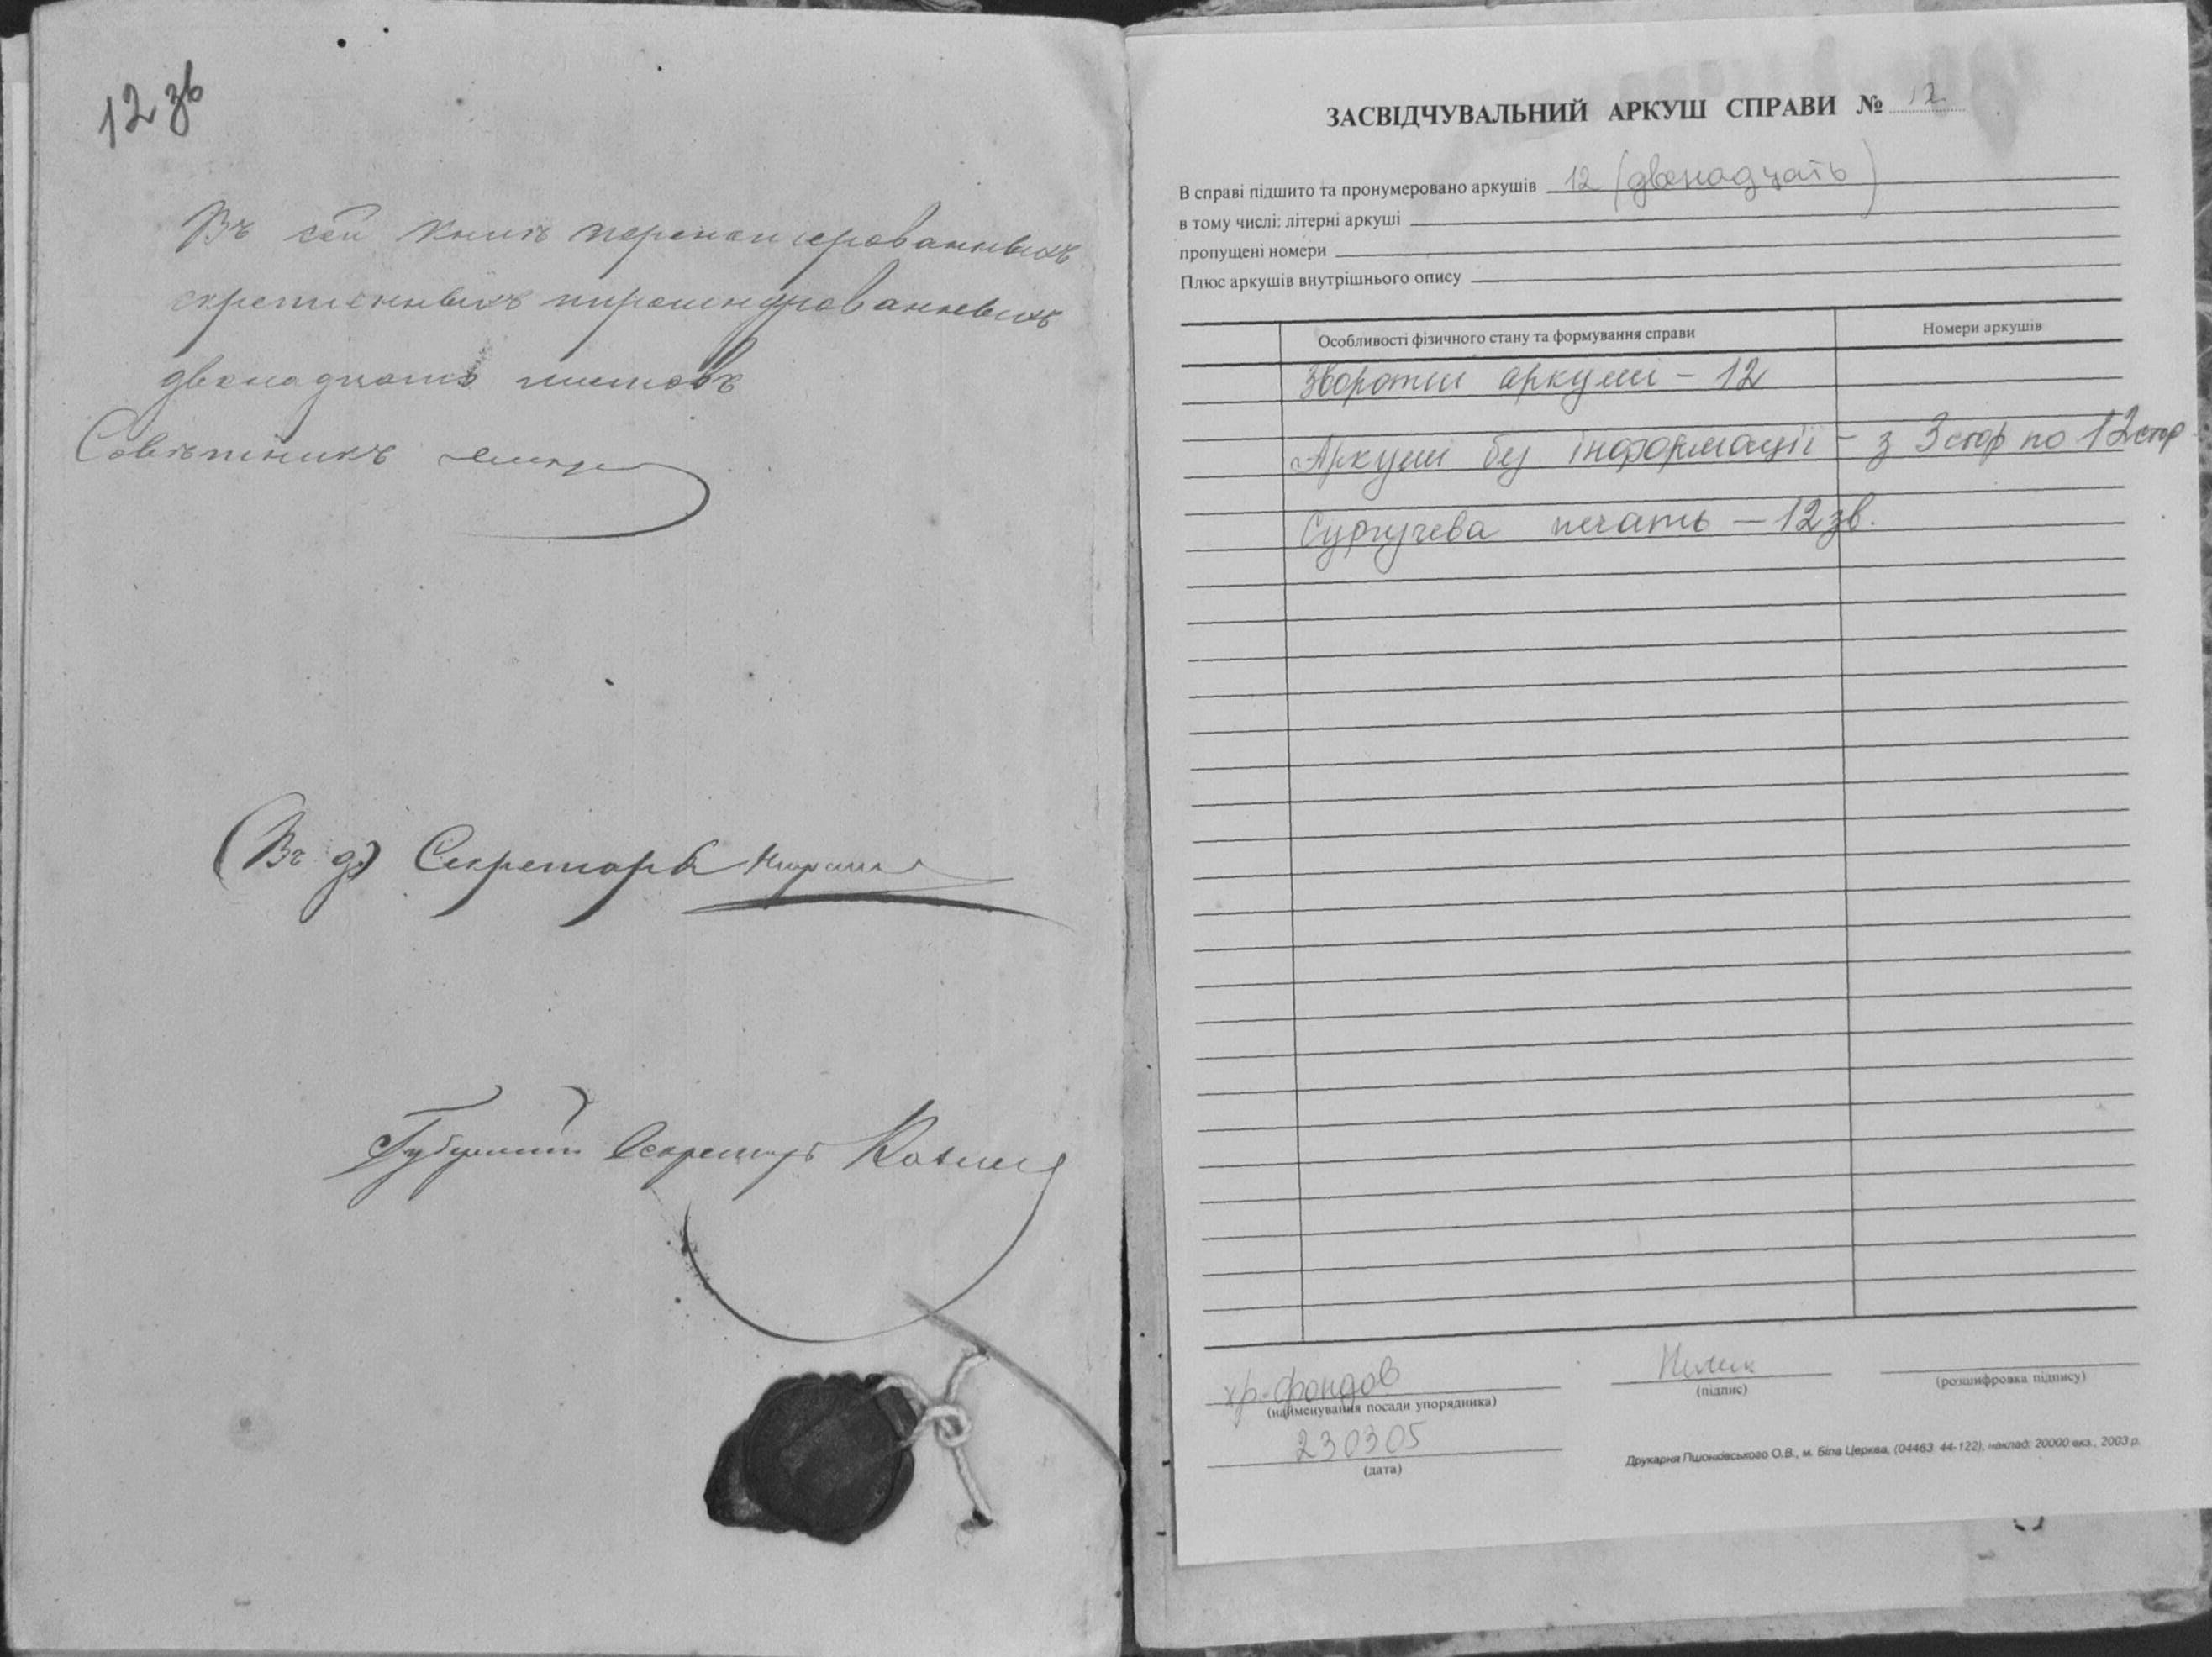 12 зв
Въ сей книгѣ перенумерованныхъ
скрепленныхъ и прошнурованныхъ
двенадцать листовъ
Совѣтникъ
(Въ д.) Секретаря
Губернскій Секретарь
ЗАСВІДЧУВАЛЬНИЙ АРКУШ СПРАВИ № 12
В справі підшито та пронумеровано аркушів 12 (дванадцать)
в тому числі: літерні аркуші
пропущені номери
Плюс аркушів внутрішнього опису
Особливості фізичного стану та формування справи Номери аркушів
Зворотні аркуші - 12
Аркуші без інформації - з 3 стор по 12 стор
Сургучева печать - 12 зв.
хр. фондов
(найменування посади упорядника) (підпис) (розшифровка підпису)
230305
(дата)
Друкарня Пшонківського О.В., м. Біла Церква, (04463 44-122), наклад: 20000 екз., 2003 р.